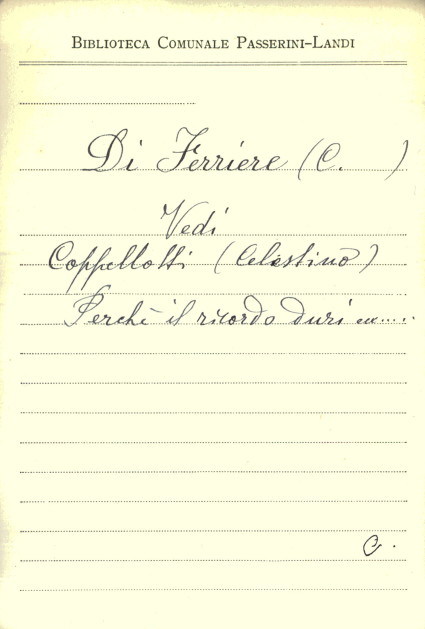 BIBLIOTECA COMUNALE PASSERINI-LANDI
Di Ferriere (C. )
Vedi
Coppellotti (Celestino)
Perchè il ricordo duri ecc.....
C.